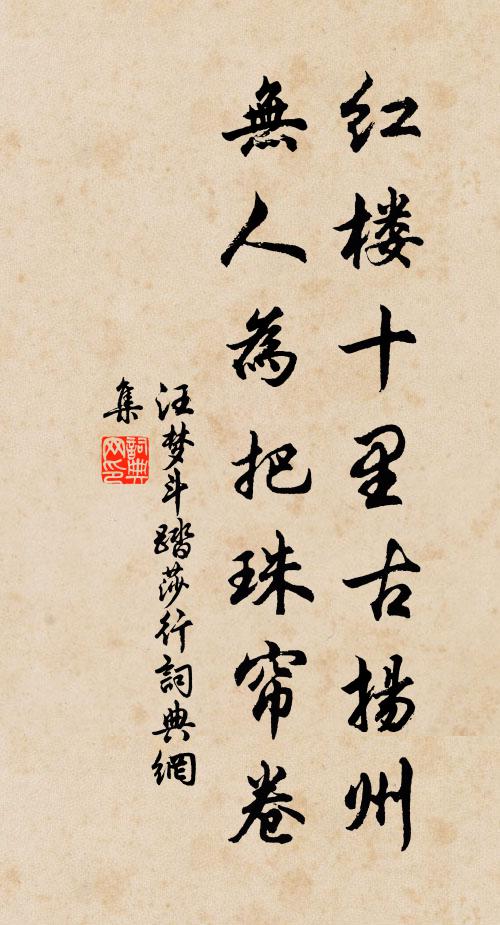 红楼十里古揚州
無人為把珠帘卷
汪梦斗踏莎行詞典網
集
詞典网印